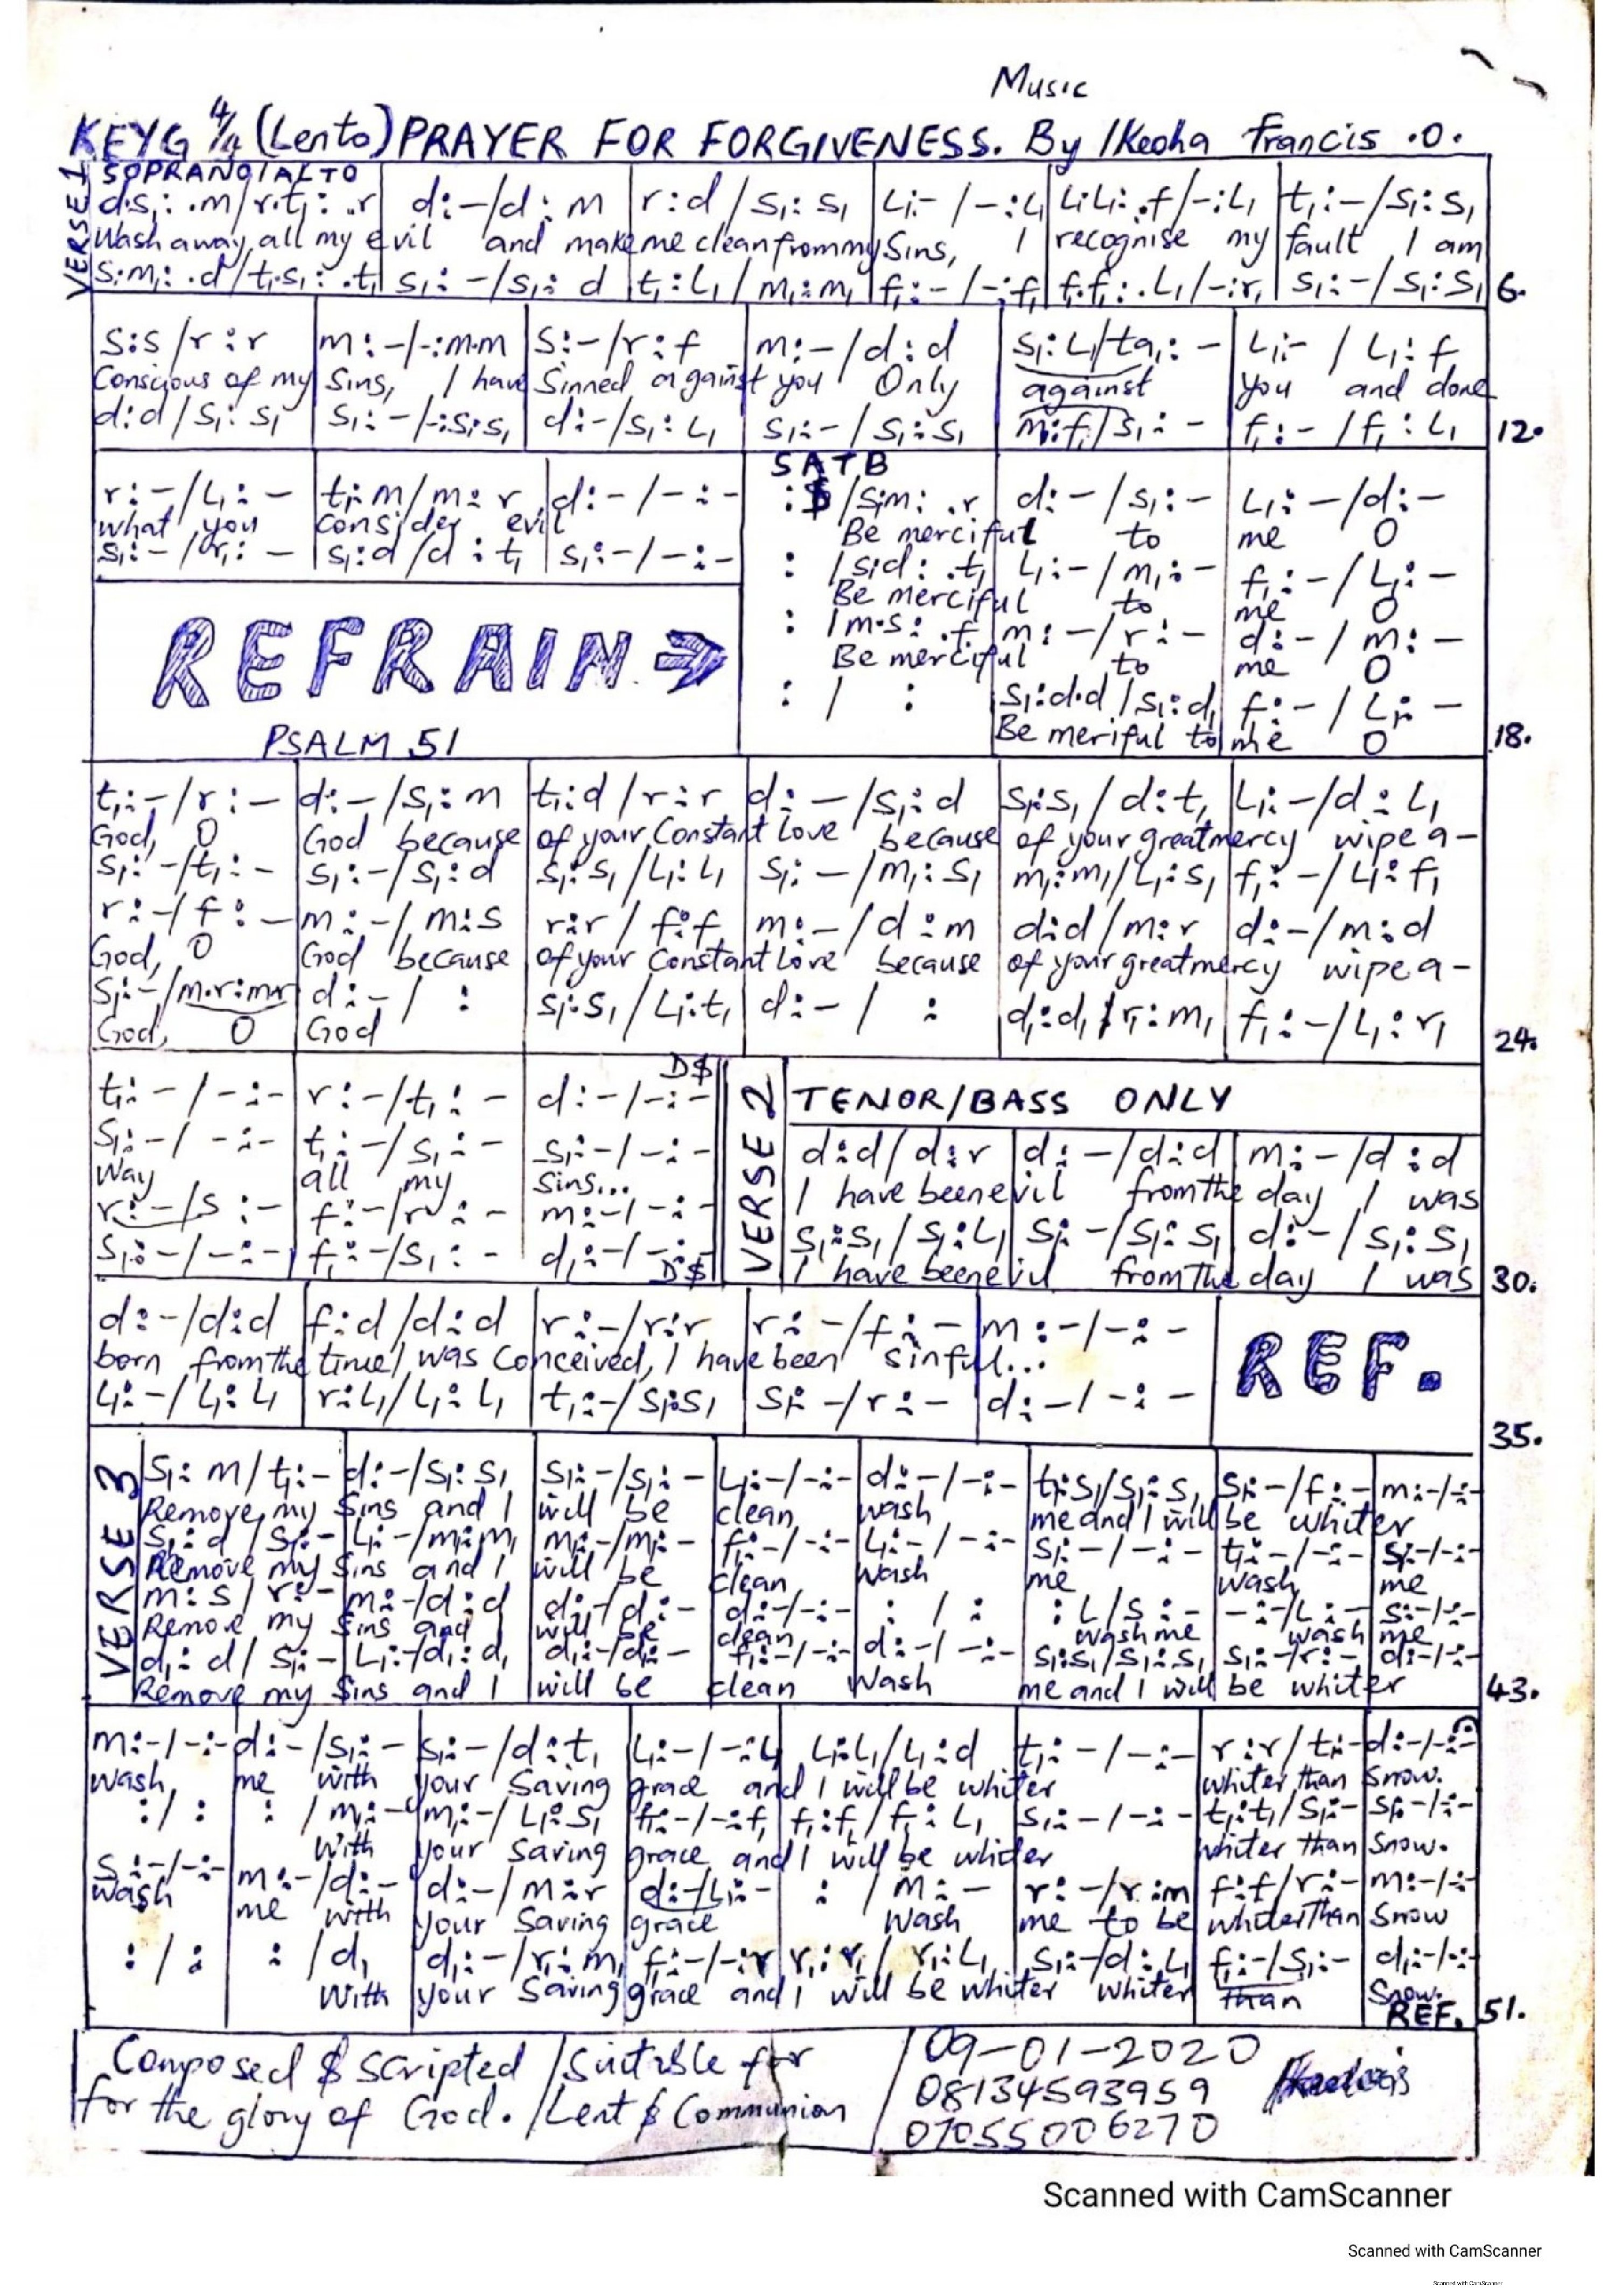 Music
KEYG 4/4 (Lento) PRAYER FOR FORGIVENESS. By Ikeoha Francis .O.
VERSE 1
SOPRANO/ALTO
d.s,: .m/r.t,: .r d:-/d:m r:d/s,:s, L,:-/-:L, L,.L,: .f/-:L, t,:-/s,:s,
Wash away all my evil and make me clean from my Sins, I recognise my fault I am
s.m,: .d/t,.s,: .t, s,:-/s,:d t,:L,/m,:m, f,:-/-:f, f,.f,: .L,/-:r, s,:-/s,:s, 6.
s:s/r:r m:-/-:m.m s:-/r:f m:-/d:d s,:L,/ta,:- L,:-/L,:f
Conscious of my Sins, I have Sinned against you Only against you and done
d:d/s,:s, s,:-/-:s,.s, d:-/s,:L, s,:-/s,:s, m,:f,/s,:- f,:-/f,:L, 12.
r:-/L,:- t,:m/m:r d:-/-:-
what you consider evil
s,:-/r,:- s,:d/d:t, s,:-/-:-
SATB
:$/s.m: .r d:-/s,:- L,:-/d:-
Be merciful to me O
: /s.d: .t, L,:-/m,:- f,:-/L,:-
Be merciful to me O
: /m.s: .f m:-/r:- d:-/m:-
Be merciful to me O
: / : s,:d.d/s,:d, f,:-/L,:-
Be meriful to me O 18.
REFRAIN ⇒
PSALM 51
t,:-/r:- d:-/s,:m t,:d/r:r d:-/s,:d s,:s,/d:t, L,:-/d:L,
God, O God because of your Constant Love because of your great mercy wipe a-
s,:-/t,:- s,:-/s,:d s,:s,/L,:L, s,:-/m,:s, m,:m,/L,:s, f,:-/L,:f,
r:-/f:- m:-/m:s r:r/f:f m:-/d:m d:d/m:r d:-/m:d
God, O God because of your Constant Love because of your great mercy wipe a-
s,:-/m.r:m.r d:-/ : s,:s,/L,:t, d:-/ : d,:d,/r,:m, f,:-/L,:r,
God, O God 24.
t,:-/-:- r:-/t,:- d:-/-:- D$
s,:-/-:- t,:-/s,:- s,:-/-:-
Way all my Sins...
r:-/s:- f:-/r:- m:-/-:-
s,:-/-:- f,:-/s,:- d,:-/-:- D$
VERSE 2
TENOR/BASS ONLY
d:d/d:r d:-/d:d m:-/d:d
I have been evil from the day I was
s,:s,/s,:L, s,:-/s,:s, d:-/s,:s,
I have been evil from the day I was 30.
d:-/d:d f:d/d:d r:-/r:r r:-/f:- m:-/-:-
born from the time I was Conceived, I have been sinful...
L,:-/L,:L, r:L,/L,:L, t,:-/s,:s, s,:-/r:- d:-/-:-
REF.
35.
VERSE 3
s,:m/t,:- d:-/s,:s, s,:-/s,:- L,:-/-:- d:-/-:- t,:s,/s,:s, s,:-/f:- m:-/-:-
Remove my Sins and I will be clean wash me and I will be whiter
s,:d/s,:- L,:-/m,:m, m,:-/m,:- f,:-/-:- L,:-/-:- s,:-/-:- t,:-/-:- s,:-/-:-
Remove my Sins and I will be clean Wash me wash me
m:s/r:- m:-/d:d d:-/d:- d:-/-:- : / : : L/s:- -:-/L:- s:-/-:-
Remove my Sins and will be clean wash me wash me
d,:d/s,:- L,:-/d,:d, d,:-/d,:- f,:-/-:- d:-/-:- s,:s,/s,:s, s,:-/r:- d:-/-:-
Remove my Sins and I will be clean Wash me and I will be whiter 43.
m:-/-:- d:-/s,:- s,:-/d:t, L,:-/-:L, L,:L,/L,:d t,:-/-:- r:r/t,:- d:-/-:-
Wash, me with your Saving grace and I will be whiter whiter than Snow.
: / : : /m,:- m,:-/L,:s, f,:-/-:f, f,:f,/f,:L, s,:-/-:- t,:t,/s,:- s,:-/-:-
With your Saving grace and I will be whiter whiter than Snow.
s:-/-:- m:-/d:- d:-/m:r d:-/L,:- : /m:- r:-/r:m f:f/r:- m:-/-:-
Wash me with your Saving grace Wash me to be whiter Than Snow
: / : : /d, d,:-/r,:m, f,:-/-:r r,:r,/r,:L, s,:-/d:L, f,:-/s,:- d,:-/-:-
With your Saving grace and I will be whiter whiter than Snow.
REF. 51.
Composed $ scripted / Suitable for
for the glory of God. / Lent $ Communion
09-01-2020
08134593959
07055006270
Scanned with CamScanner
Scanned with CamScanner
Scanned with CamScanner